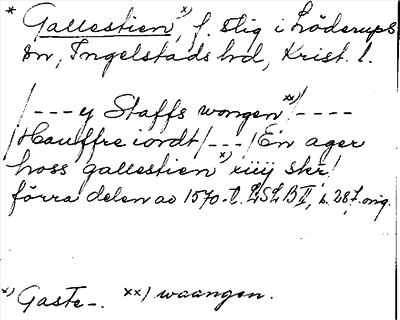 * Gallestien x), f. stig i Löderups
sn, Ingelstads hd, Krist. l.
/---y Staffs wongen xx)/----
/Hauffre iordt/---/Én ager
hoss gallestien x) xiiij skr!
förra delen av 1570-t. LSLB II, s. 287. orig.
x) Gaste-. xx) waangen.